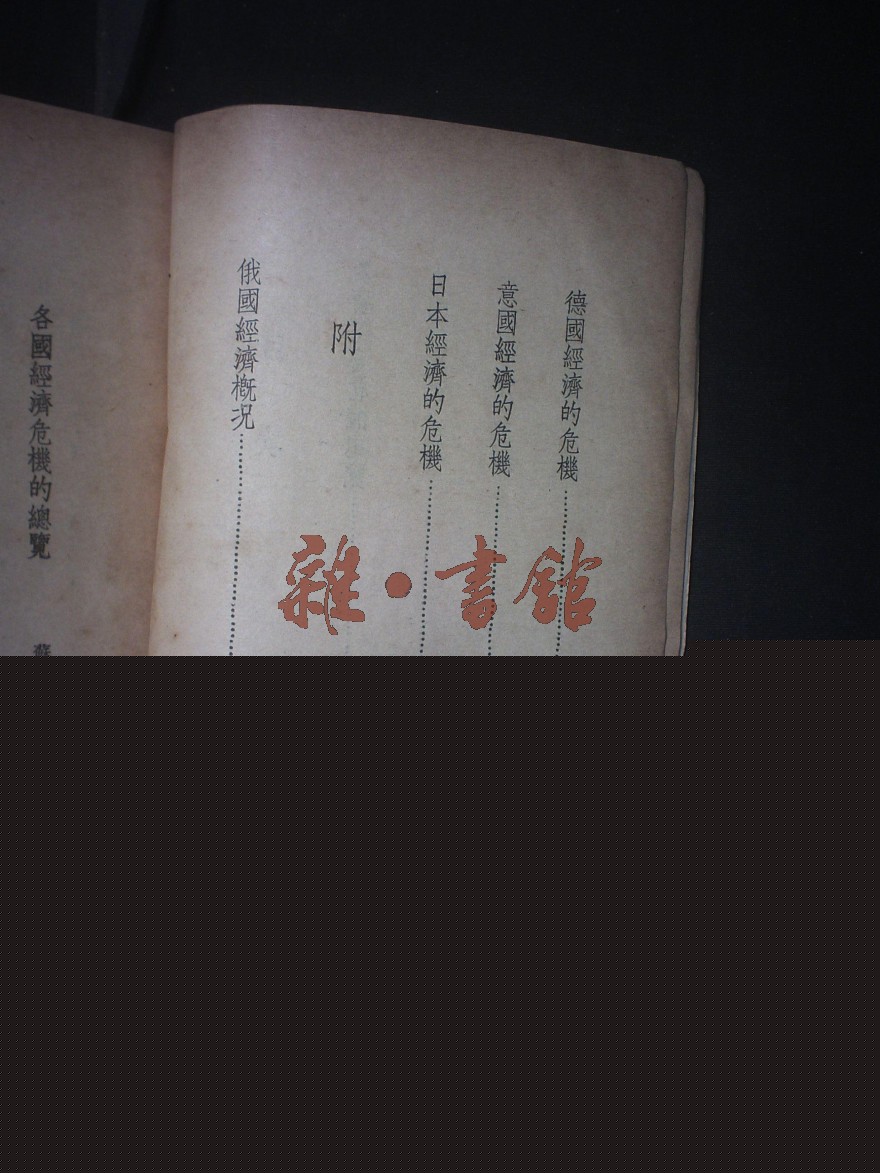 德國經濟的危機
意國經濟的危機
日本經濟的危機
附
俄國經濟概況
各國經濟危機的總覽
雜·書館